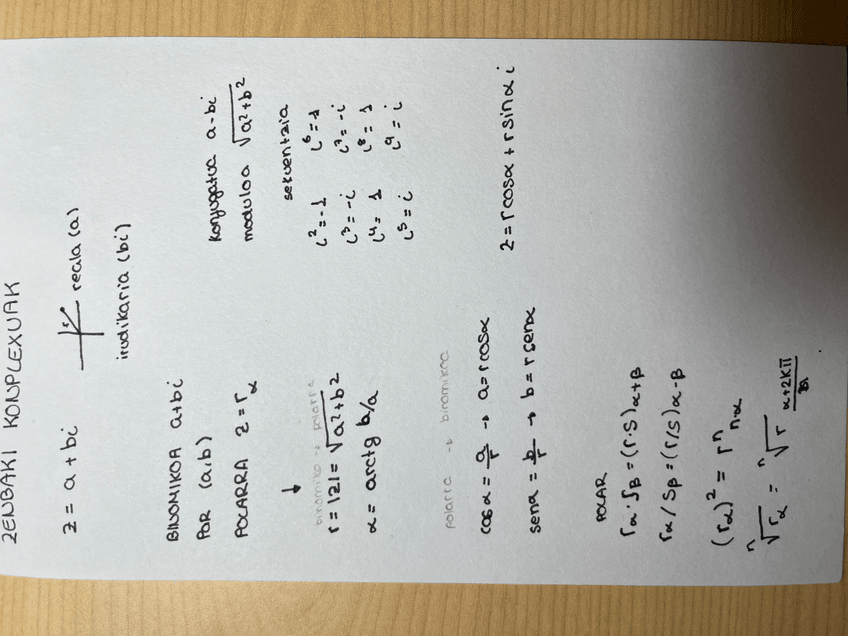 ZENBAKI KONPLEXUAK
z = a + bi
reala (a)
irudikaria (bi)
BINOMIKOA a+bi
PAR (a,b)
POLARRA z = r_α
konjugatua a-bi
moduloa √a²+b²
↓
binomiko → polarra
r = |z| = √a²+b²
α = arctg b/a
sekuentzia
i² = -1 i⁶ = 1
i³ = -i i⁷ = -i
i⁴ = 1 i⁸ = 1
i⁵ = i i⁹ = i
polarra → binomikoa
cos α = a/r → a = r cos α
sen α = b/r → b = r sen α
z = r cos α + r sin α i
POLAR
r_α · s_β = (r·s)_α+β
r_α / s_β = (r/s)_α-β
(r_α)² = rⁿ_n·α
ⁿ√r_α = ⁿ√r α+2kπ/n